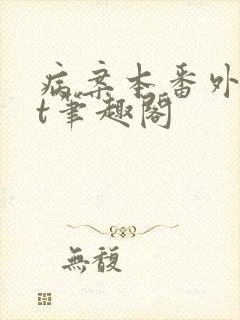 病案本番外
t笔趣阁
無馥